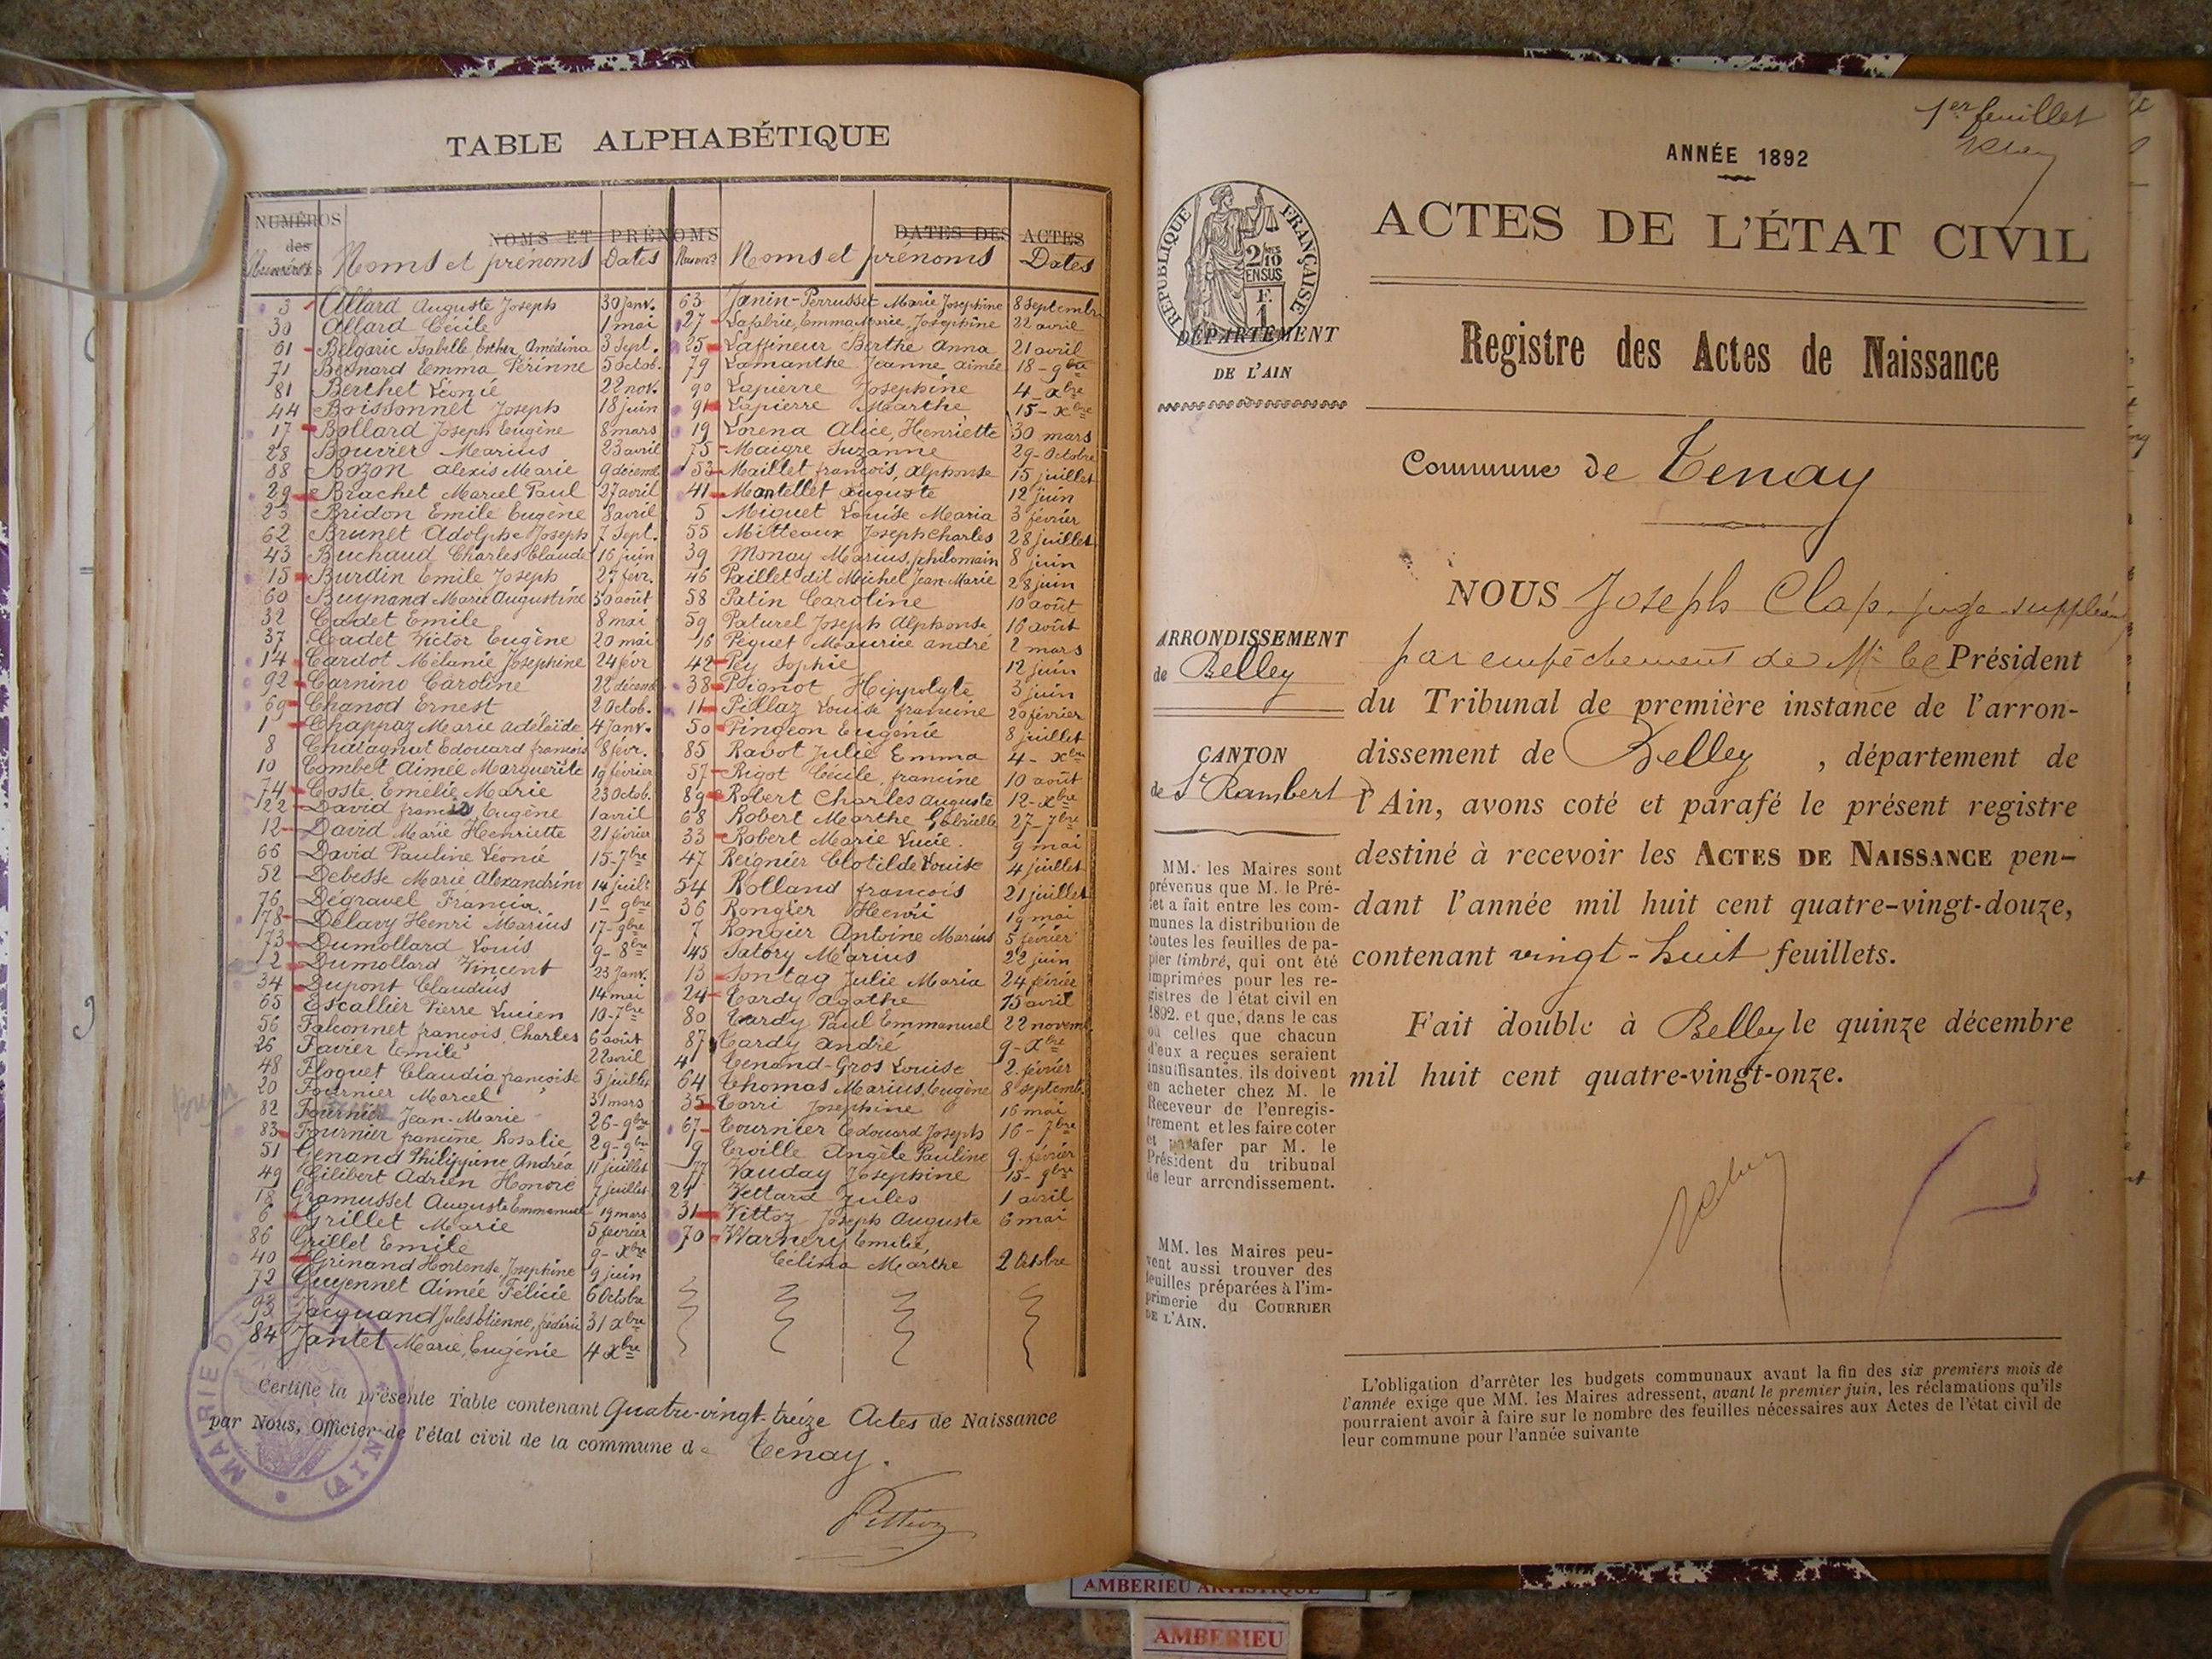 TABLE ALPHABÉTIQUE
NUMÉROS des NOMS ET PRÉNOMS DATES DES ACTES
Numéros Noms et prénoms Dates Numéros Noms et prénoms Dates
3 Allard Auguste Joseph 30 Janv.
30 Allard Cécile 1 mai
61 Belgaric Isabelle, Esther Amédina 3 Sept.
71 Besnard Emma Périnne 5 octob.
81 Berthet Léonie 22 nov.
44 Boissonnet Joseph 18 juin
17 Bollard Joseph Eugène 8 mars
28 Bouvier Marius 23 avril
88 Bozon Alexis Marie 9 décemb
29 Brachet Marcel Paul 27 avril
23 Bridon Emile Eugène 8 avril
62 Brunet Adolphe Joseph 7 Sept.
43 Buchaud Charles Claude 16 juin
15 Burdin Emile Joseph 27 févr.
60 Buynand Marie Augustine 30 août
32 Cadet Emile 8 mai
37 Cadet Victor Eugène 20 mai
14 Cardot Mélanie Joséphine 24 févr
92 Carnino Caroline 22 décemb
69 Chanod Ernest 2 Octob.
1 Chappaz Marie Adélaïde 4 Janv.
8 Chatagnat Edouard françois 8 févr.
10 Combet Aimée Marguerite 19 février
74 Coste Emélie Marie 23 octob.
22 David francis Eugène 1 avril
12 David Marie Henriette 21 février
66 David Pauline Léonie 15-7bre
52 Debesse Marie Alexandrine 14 juilt
76 Dégravel Francia 1-9bre
78 Delavy Henri Marius 17-9bre
73 Dumollard Louis 9-8bre
2 Dumollard Vincent 23 Janv.
34 Dupont Claudius 14 mai
65 Escallier Pierre Lucien 10-7bre
56 Falconnet françois, Charles 6 août
26 Favier Emile 22 avril
48 Floquet Claudia françoise 5 juillet
20 Fournier Marcel 31 mars
82 Fournier Jean-Marie 26-9bre
83 Fournier francine Rosalie 29-9bre
51 Genand Philippine, Andréa 11 juillet
49 Gilibert Adrien Honoré 7 juillet
18 Gramusset Auguste Emmanuel 19 mars
6 Grillet Marie 5 février
86 Grillet Emile 9-Xbre
40 Grinand Hortense Joséphine 9 juin
72 Guyennet Aimée Félicie 6 Octobre
93 Jacquand Jules Etienne, frédéric 31 Xbre
84 Jantet Marie, Eugénie 4 Xbre
63 Janin-Perrusset Marie Joséphine 8 Septembre
27 Lafabrie, Emma Marie, Joséphine 22 avril
25 Laffineur Berthe Anna 21 avril
79 Lamanthe Jeanne Aimée 18-9bre
90 Lapierre Joséphine 4-Xbre
91 Lapierre Marthe 15-Xbre
19 Lorena Alice, Henriette 30 mars
75 Maigre Suzanne 29-Octobre
53 Maillet françois, Alphonse 15 juillet
41 Mantellet Auguste 12 juin
5 Miguet Louise Maria 3 février
55 Mitteaux Joseph Charles 28 juillet
39 Monay Marius, philomain 8 juin
46 Paillet dit Michel Jean-Marie 28 juin
58 Patin Caroline 10 août
59 Paturel Joseph Alphonse 16 août
16 Péquet Maurice André 2 mars
42 Pey Sophie 12 juin
38 Pignot Hippolyte 3 juin
11 Pillaz Louise francine 20 février
50 Pingeon Eugénie 8 juillet
85 Ravot Julie Emma 4-Xbre
57 Rigot Cécile, francine 10 août
89 Robert Charles Auguste 12-Xbre
68 Robert Marthe Gabrielle 27-7bre
33 Robert Marie Lucie. 9 mai
47 Reignier Clotilde Louise 4 juillet
54 Rolland françois 21 juillet
36 Rongier Henri 19 mai
7 Rongier Antoine Marius 5 février
45 Satory Marius 22 juin
13 Sontag Julie Maria 24 février
24 Tardy Agathe 15 avril
80 Tardy Paul Emmanuel 22 novemb.
87 Tardy André 9-Xbre
4 Tenand-Gros Louise 2 février
64 Thomas Marius, Eugène 8 septemb.
35 Torri Joséphine 16 mai
67 Tournier Edouard Joseph 16-7bre
9 Troille Angèle Pauline 9 février
77 Vauday Joséphine 15-9bre
21 Vettard Jules 1 avril
31 Vittoz Joseph Auguste 6 mai
70 Warnery Emilie,
Célina Marthe 2 Octobre
Certifié la présente Table contenant Quatre-vingt-treize Actes de Naissance
par Nous, Officier de l'état civil de la commune de Tenay.
MAIRIE DE (AIN)
1er feuillet
ANNÉE 1892
ACTES DE L'ÉTAT CIVIL
RÉPUBLIQUE FRANÇAISE
2/10 EN SUS
F. 1
DÉPARTEMENT
DE L'AIN
Registre des Actes de Naissance
Commune de Tenay
ARRONDISSEMENT
de Belley
CANTON
de St Rambert
NOUS Joseph Clap, juge suppléant
par empêchement de Mr le Président
du Tribunal de première instance de l'arron-
dissement de Belley, département de
l'Ain, avons coté et parafé le présent registre
destiné à recevoir les ACTES DE NAISSANCE pen-
dant l'année mil huit cent quatre-vingt-douze,
contenant vingt-huit feuillets.
Fait double à Belley le quinze décembre
mil huit cent quatre-vingt-onze.
MM. les Maires sont
prévenus que M. le Pré-
fet a fait entre les com-
munes la distribution de
toutes les feuilles de pa-
pier timbré, qui ont été
imprimées pour les re-
gistres de l'état civil en
1892. et que, dans le cas
où celles que chacun
d'eux a reçues seraient
insuffisantes, ils doivent
en acheter chez M. le
Receveur de l'enregis-
trement et les faire coter
et parafer par M. le
Président du tribunal
de leur arrondissement.
MM. les Maires peu-
vent aussi trouver des
feuilles préparées à l'im-
primerie du COURRIER
DE L'AIN.
L'obligation d'arrêter les budgets communaux avant la fin des six premiers mois de
l'année exige que MM. les Maires adressent, avant le premier juin, les réclamations qu'ils
pourraient avoir à faire sur le nombre des feuilles nécessaires aux Actes de l'état civil de
leur commune pour l'année suivante
AMBERIEU ARTISTIQUE
AMBERIEU